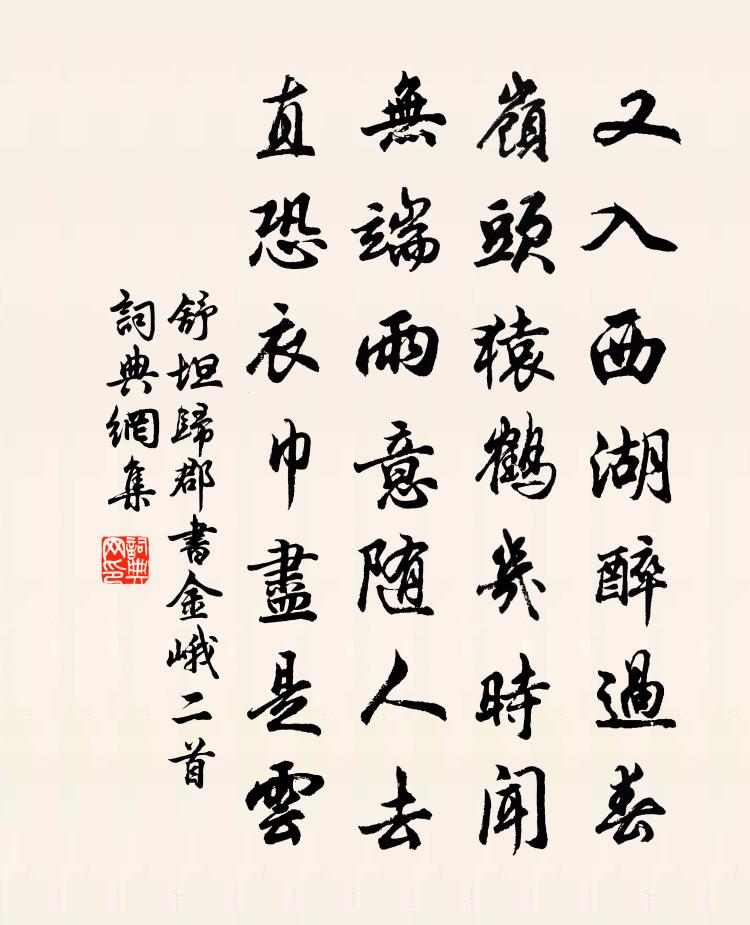 又入西湖醉過春
嶺頭猿鶴幾時聞
無端雨意随人去
直恐衣巾盡是雲
舒坦歸郡書金峨二首
詞典網集
詞典网印